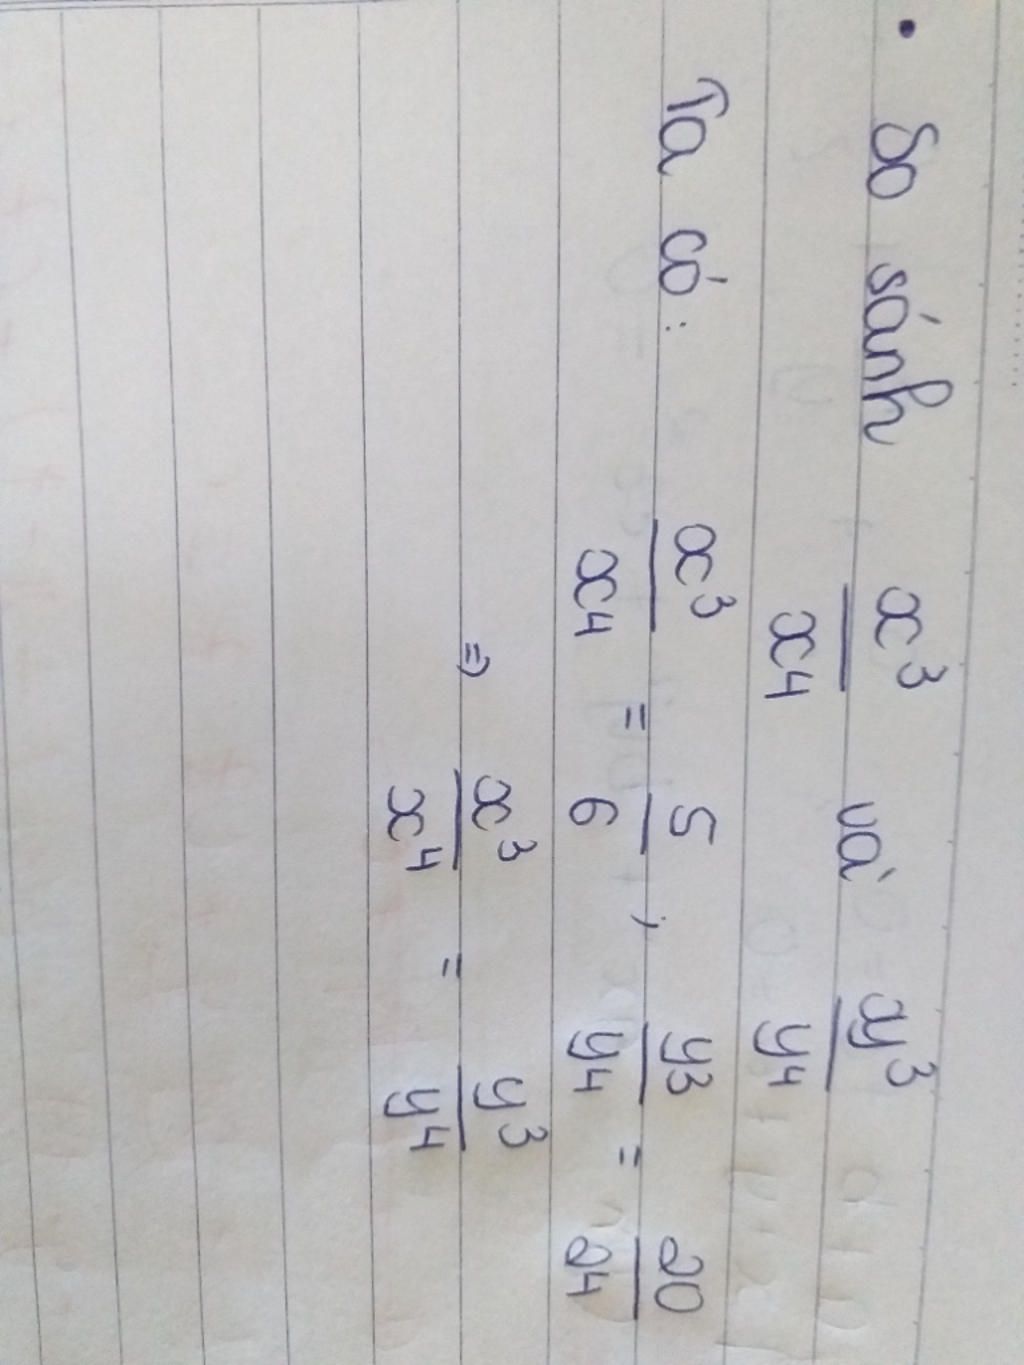 • So sánh x³/x4 và xy³/y4
Ta có: x³/x4 = 5/6 ; y3/y4 = 20/24
⇒ x³/x4 = y³/y4